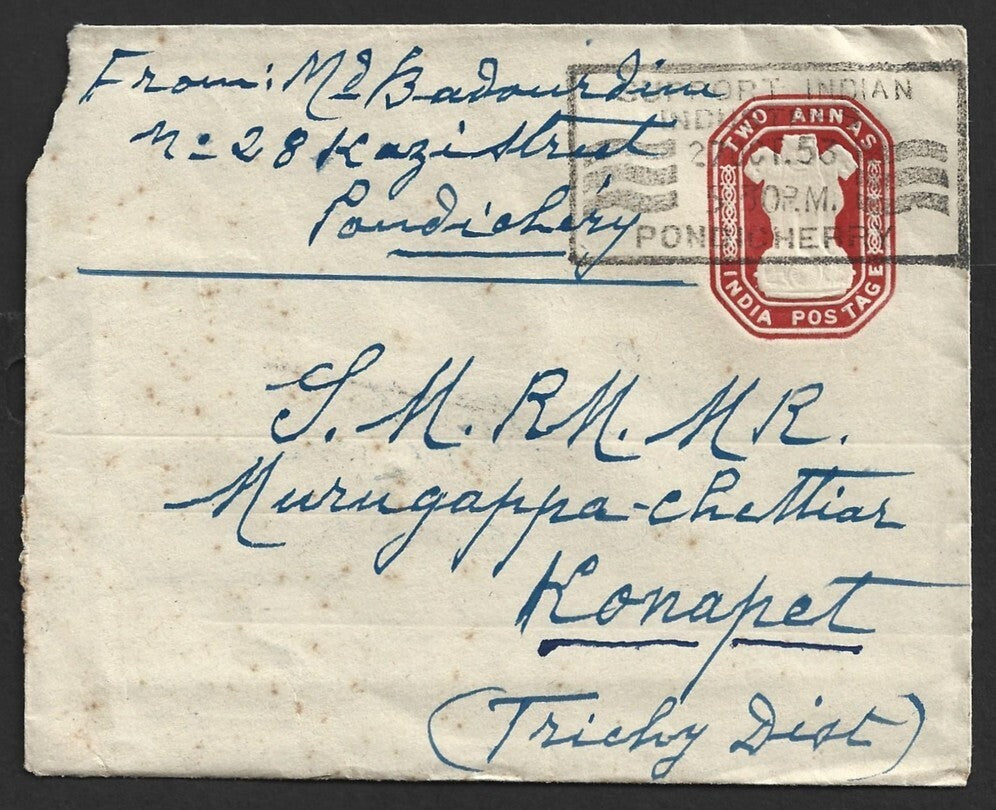 From: Md Badourdine
No 28 Kazi Street
Pondichéry
SUPPORT INDIAN
OCT. 53
P.M.
PONDICHERRY
TWO ANNAS
INDIA POSTAGE
S. M. RM. M R.
Murugappa-chettiar
Konapet
(Trichy Dist)